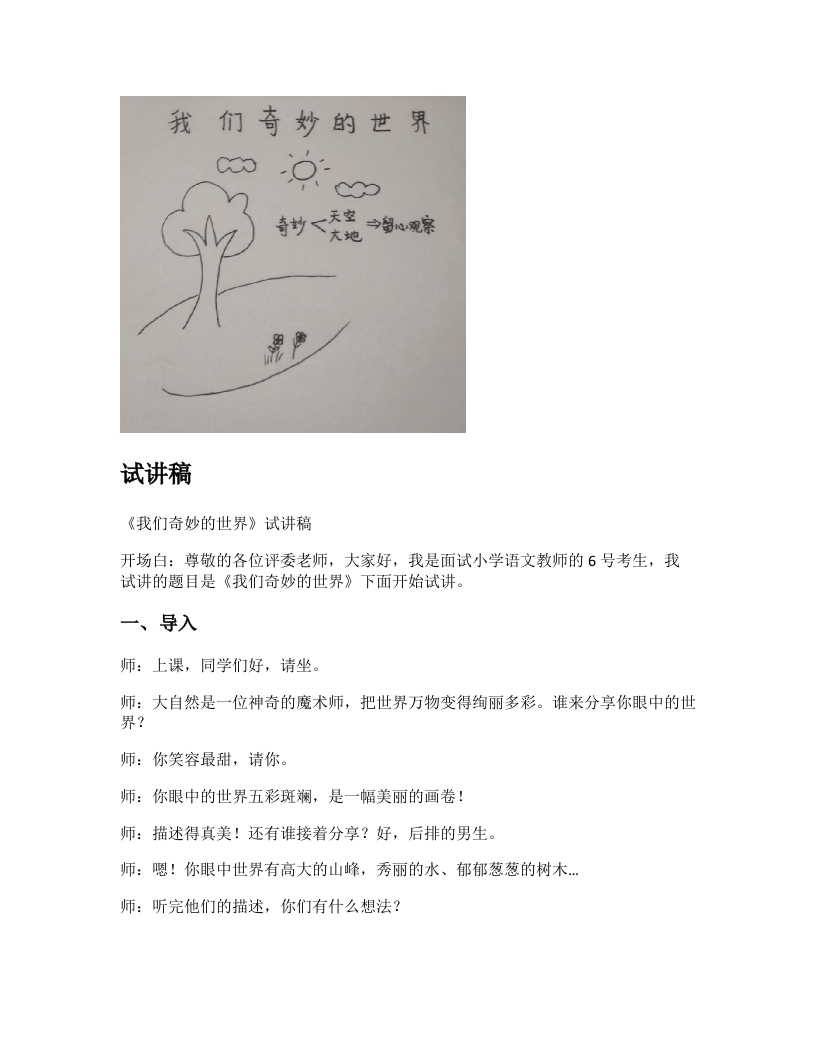 我们奇妙的世界
奇妙 < 天空
大地
⇒留心观察
试讲稿
《我们奇妙的世界》试讲稿
开场白：尊敬的各位评委老师，大家好，我是面试小学语文教师的 6 号考生，我
试讲的题目是《我们奇妙的世界》下面开始试讲。
一、导入
师：上课，同学们好，请坐。
师：大自然是一位神奇的魔术师，把世界万物变得绚丽多彩。谁来分享你眼中的世
界？
师：你笑容最甜，请你。
师：你眼中的世界五彩斑斓，是一幅美丽的画卷！
师：描述得真美！还有谁接着分享？好，后排的男生。
师：嗯！你眼中世界有高大的山峰，秀丽的水、郁郁葱葱的树木…
师：听完他们的描述，你们有什么想法？